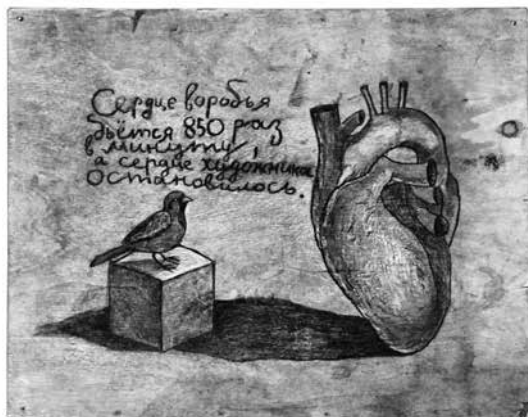 Сердце воробья
бьётся 850 раз
в минуту,
а сердце художника
остановилось.